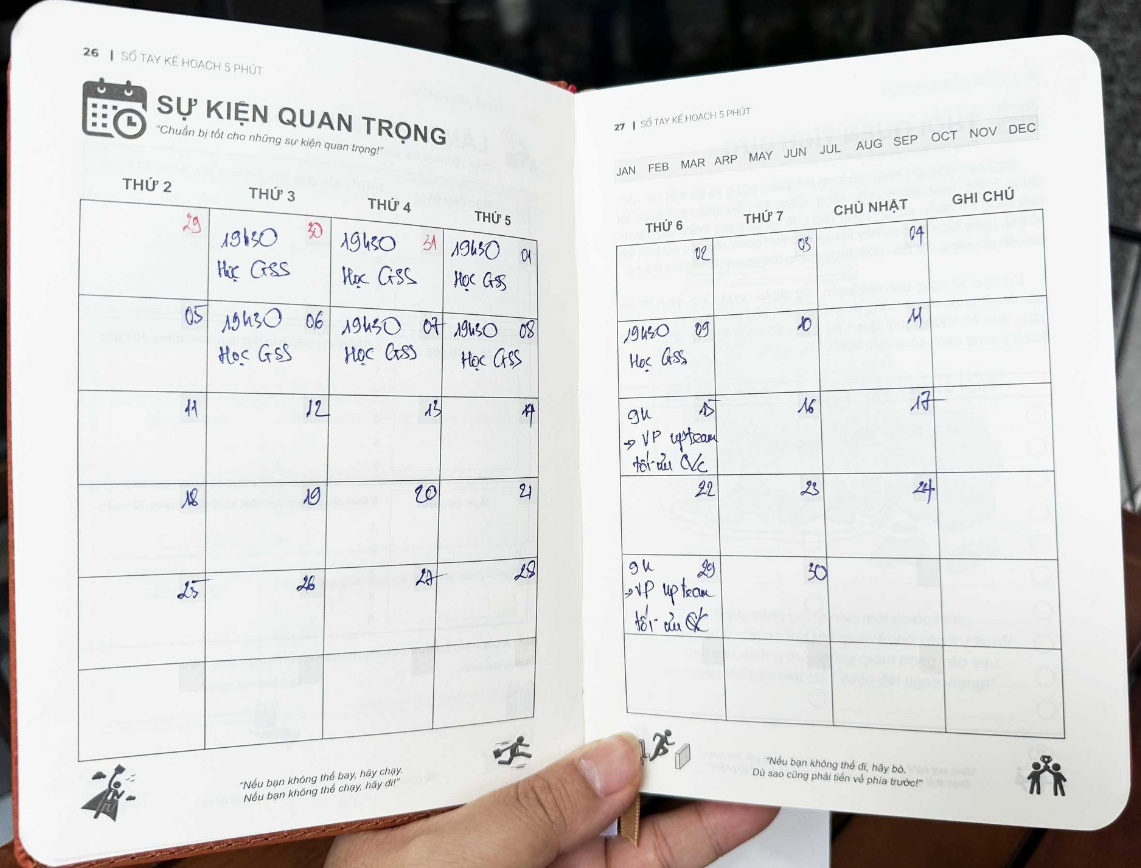 26 | SỔ TAY KẾ HOẠCH 5 PHÚT
SỰ KIỆN QUAN TRỌNG
"Chuẩn bị tốt cho những sự kiện quan trọng!"
THỨ 2 THỨ 3 THỨ 4 THỨ 5
29 19h30 30 19h30 31 19h30 01
Học GSS Học GSS Học GSS
05 19h30 06 19h30 07 19h30 08
Học GSS Học GSS Học GSS
11 12 13 14
18 19 20 21
25 26 27 28
"Nếu bạn không thể bay, hãy chạy.
Nếu bạn không thể chạy, hãy đi!"
27 | SỔ TAY KẾ HOẠCH 5 PHÚT
JAN FEB MAR ARP MAY JUN JUL AUG SEP OCT NOV DEC
THỨ 6 THỨ 7 CHỦ NHẬT GHI CHÚ
02 03 04
19h30 09 10 11
Học GSS
9h 15 16 17
→ VP up team
tối
22 23 24
9h 29 30
→ VP up team
tối
"Nếu bạn không thể đi, hãy bò.
Dù sao cũng phải tiến về phía trước!"